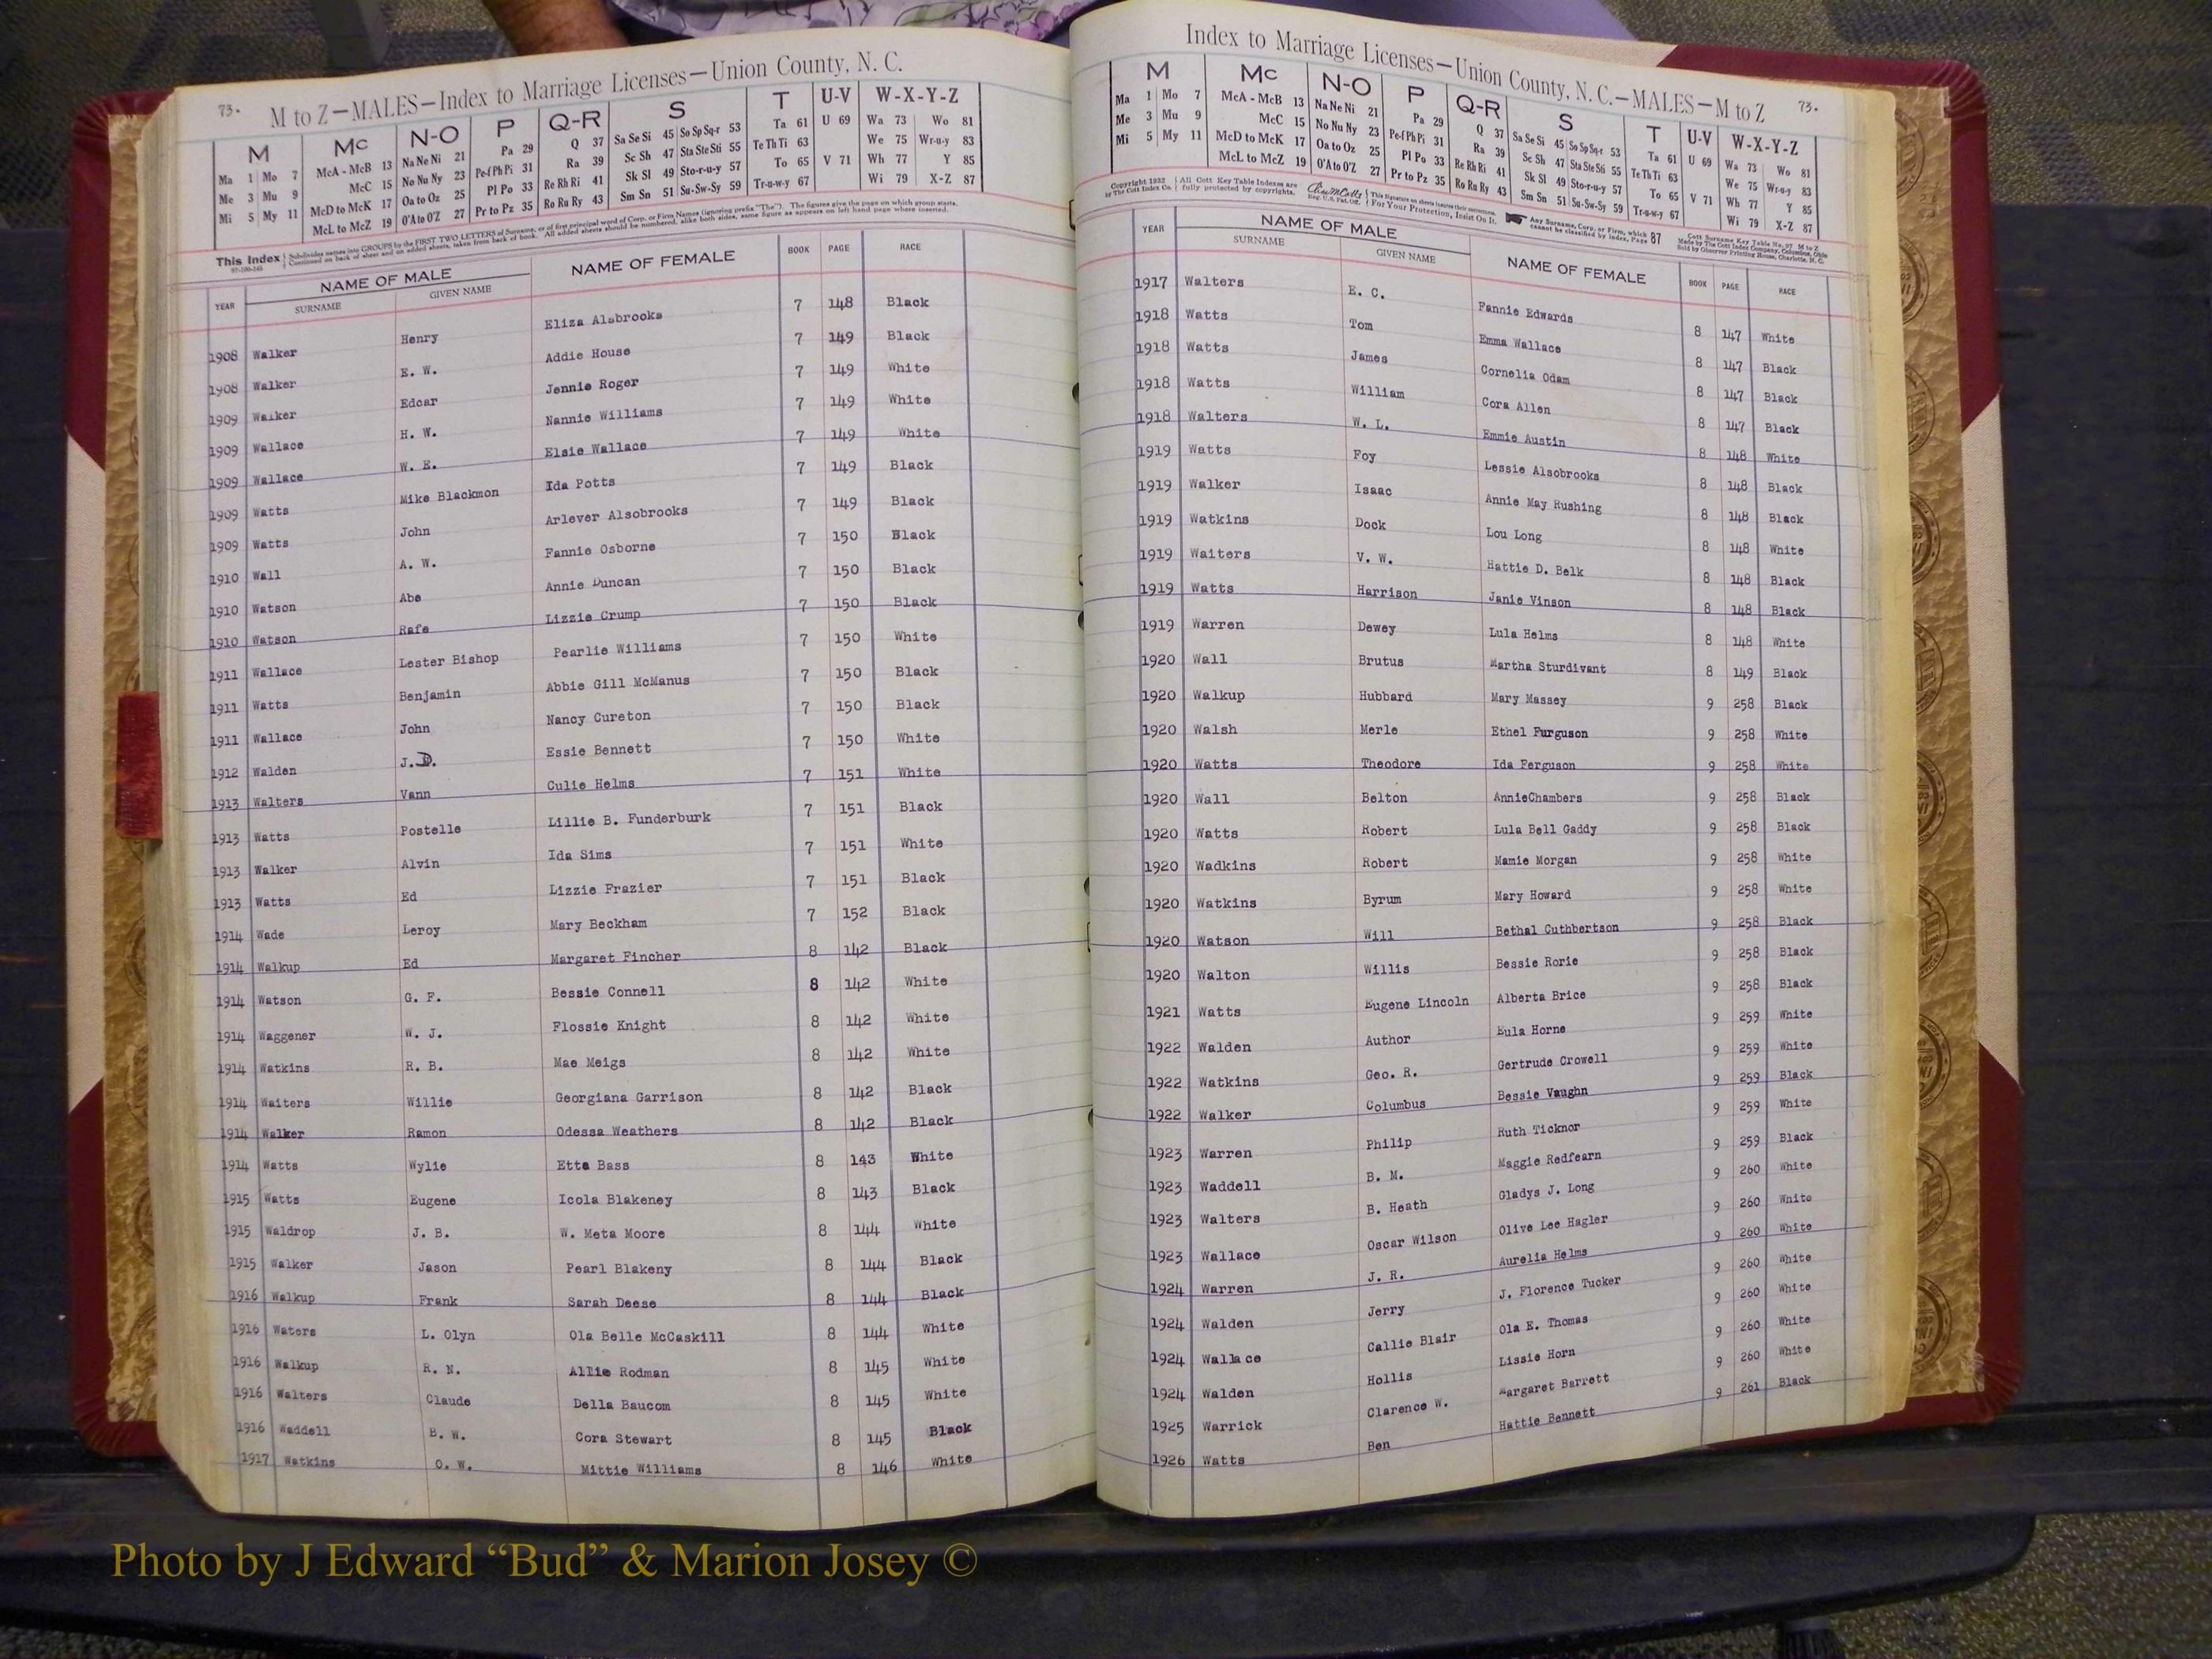 73. M to Z—MALES—Index to Marriage Licenses—Union County, N. C.
M Mc N-O P Q-R S T U-V W-X-Y-Z
Ma 1 Mo 7 McA - McB 13 Na Ne Ni 21 Pa 29 Q 37 Sa Se Si 45 So Sp Sq-r 53 Ta 61 U 69 Wa 73 Wo 81
Me 3 Mu 9 McC 15 No Nu Ny 23 Pe-f Ph Pi 31 Ra 39 Sc Sh 47 Sta Ste Sti 55 Te Th Ti 63 We 75 Wr-u-y 83
Mi 5 My 11 McD to McK 17 Oa to Oz 25 Pl Po 33 Re Rh Ri 41 Sk Sl 49 Sto-r-u-y 57 To 65 V 71 Wh 77 Y 85
McL to McZ 19 O'A to O'Z 27 Pr to Pz 35 Ro Ru Ry 43 Sm Sn 51 Su-Sw-Sy 59 Tr-u-w-y 67 Wi 79 X-Z 87
This Index Subdivides names into GROUPS by the FIRST TWO LETTERS of Surname, or of first principal word of Corp. or Firm Names (ignoring prefix "The"). The figures give the page on which group starts.
Continued on back of sheet and on added sheets, taken from back of book. All added sheets should be numbered, alike both sides, same figure as appears on left hand page where inserted.
YEAR NAME OF MALE SURNAME GIVEN NAME NAME OF FEMALE BOOK PAGE RACE
1908 Walker Henry Eliza Alsbrooks 7 148 Black
1908 Walker E. W. Addie House 7 149 Black
1909 Walker Edgar Jennie Roger 7 149 White
1909 Wallace H. W. Nannie Williams 7 149 White
1909 Wallace W. E. Elsie Wallace 7 149 White
1909 Watts Mike Blackmon Ida Potts 7 149 Black
1909 Watts John Arlever Alsobrooks 7 149 Black
1910 Wall A. W. Fannie Osborne 7 150 Black
1910 Watson Abe Annie Duncan 7 150 Black
1910 Watson Rafe Lizzie Crump 7 150 Black
1911 Wallace Lester Bishop Pearlie Williams 7 150 White
1911 Watts Benjamin Abbie Gill McManus 7 150 Black
1911 Wallace John Nancy Cureton 7 150 Black
1912 Walden J. D. Essie Bennett 7 150 White
1913 Walters Vann Culie Helms 7 151 White
1913 Watts Postelle Lillie B. Funderburk 7 151 Black
1913 Walker Alvin Ida Sims 7 151 White
1913 Watts Ed Lizzie Frazier 7 151 Black
1914 Wade Leroy Mary Beckham 7 152 Black
1914 Walkup Ed Margaret Fincher 8 142 Black
1914 Watson G. F. Bessie Connell 8 142 White
1914 Waggener W. J. Flossie Knight 8 142 White
1914 Watkins R. B. Mae Meigs 8 142 White
1914 Waiters Willie Georgiana Garrison 8 142 Black
1914 Walker Ramon Odessa Weathers 8 142 Black
1914 Watts Wylie Etta Bass 8 143 White
1915 Watts Eugene Icola Blakeney 8 143 Black
1915 Waldrop J. B. W. Meta Moore 8 144 White
1915 Walker Jason Pearl Blakeny 8 144 Black
1916 Walkup Frank Sarah Deese 8 144 Black
1916 Waters L. Olyn Ola Belle McCaskill 8 144 White
1916 Walkup R. N. Allie Rodman 8 145 White
1916 Walters Claude Della Baucom 8 145 White
1916 Waddell B. W. Cora Stewart 8 145 Black
1917 Watkins O. W. Mittie Williams 8 146 White
Index to Marriage Licenses—Union County, N. C.—MALES—M to Z 73.
M Mc N-O P Q-R S T U-V W-X-Y-Z
Ma 1 Mo 7 McA - McB 13 Na Ne Ni 21 Pa 29 Q 37 Sa Se Si 45 So Sp Sq-r 53 Ta 61 U 69 Wa 73 Wo 81
Me 3 Mu 9 McC 15 No Nu Ny 23 Pe-f Ph Pi 31 Ra 39 Sc Sh 47 Sta Ste Sti 55 Te Th Ti 63 We 75 Wr-u-y 83
Mi 5 My 11 McD to McK 17 Oa to Oz 25 Pl Po 33 Re Rh Ri 41 Sk Sl 49 Sto-r-u-y 57 To 65 V 71 Wh 77 Y 85
McL to McZ 19 O'A to O'Z 27 Pr to Pz 35 Ro Ru Ry 43 Sm Sn 51 Su-Sw-Sy 59 Tr-u-w-y 67 Wi 79 X-Z 87
Copyright 1932 by The Cott Index Co. All Cott Key Table Indexes are fully protected by copyrights. For Your Protection, Insist On It. Any Surname, Corp. or Firm, which cannot be classified by index, Page 87
Cott Surname Key Table No. 97 M to Z
Made by The Cott Index Company, Columbus, Ohio
Sold by Observer Printing House, Charlotte, N. C.
YEAR NAME OF MALE SURNAME GIVEN NAME NAME OF FEMALE BOOK PAGE RACE
1917 Walters E. C. Fannie Edwards 8 147 White
1918 Watts Tom Emma Wallace 8 147 Black
1918 Watts James Cornelia Odam 8 147 Black
1918 Watts William Cora Allen 8 147 Black
1918 Walters W. L. Emmie Austin 8 148 White
1919 Watts Foy Lessie Alsobrooks 8 148 Black
1919 Walker Isaac Annie May Rushing 8 148 Black
1919 Watkins Dock Lou Long 8 148 White
1919 Waiters V. W. Hattie D. Belk 8 148 Black
1919 Watts Harrison Janie Vinson 8 148 Black
1919 Warren Dewey Lula Helms 8 148 White
1920 Wall Brutus Martha Sturdivant 8 149 Black
1920 Walkup Hubbard Mary Massey 9 258 Black
1920 Walsh Merle Ethel Furguson 9 258 White
1920 Watts Theodore Ida Ferguson 9 258 White
1920 Wall Belton AnnieChambers 9 258 Black
1920 Watts Robert Lula Bell Gaddy 9 258 Black
1920 Wadkins Robert Mamie Morgan 9 258 White
1920 Watkins Byrum Mary Howard 9 258 White
1920 Watson Will Bethal Cuthbertson 9 258 Black
1920 Walton Willis Bessie Rorie 9 258 Black
1921 Watts Eugene Lincoln Alberta Brice 9 258 Black
1922 Walden Author Eula Horne 9 259 White
1922 Watkins Geo. R. Gertrude Crowell 9 259 White
1922 Walker Columbus Bessie Vaughn 9 259 Black
1923 Warren Philip Ruth Ticknor 9 259 White
1923 Waddell B. M. Maggie Redfearn 9 259 Black
1923 Walters B. Heath Gladys J. Long 9 260 White
1923 Wallace Oscar Wilson Olive Lee Hagler 9 260 White
1924 Warren J. R. Aurelia Helms 9 260 White
1924 Walden Jerry J. Florence Tucker 9 260 White
1924 Wallace Callie Blair Ola E. Thomas 9 260 White
1924 Walden Hollis Lissie Horn 9 260 White
1925 Warrick Clarence W. Margaret Barrett 9 260 White
1926 Watts Ben Hattie Bennett 9 261 Black
Photo by J Edward “Bud” & Marion Josey ©